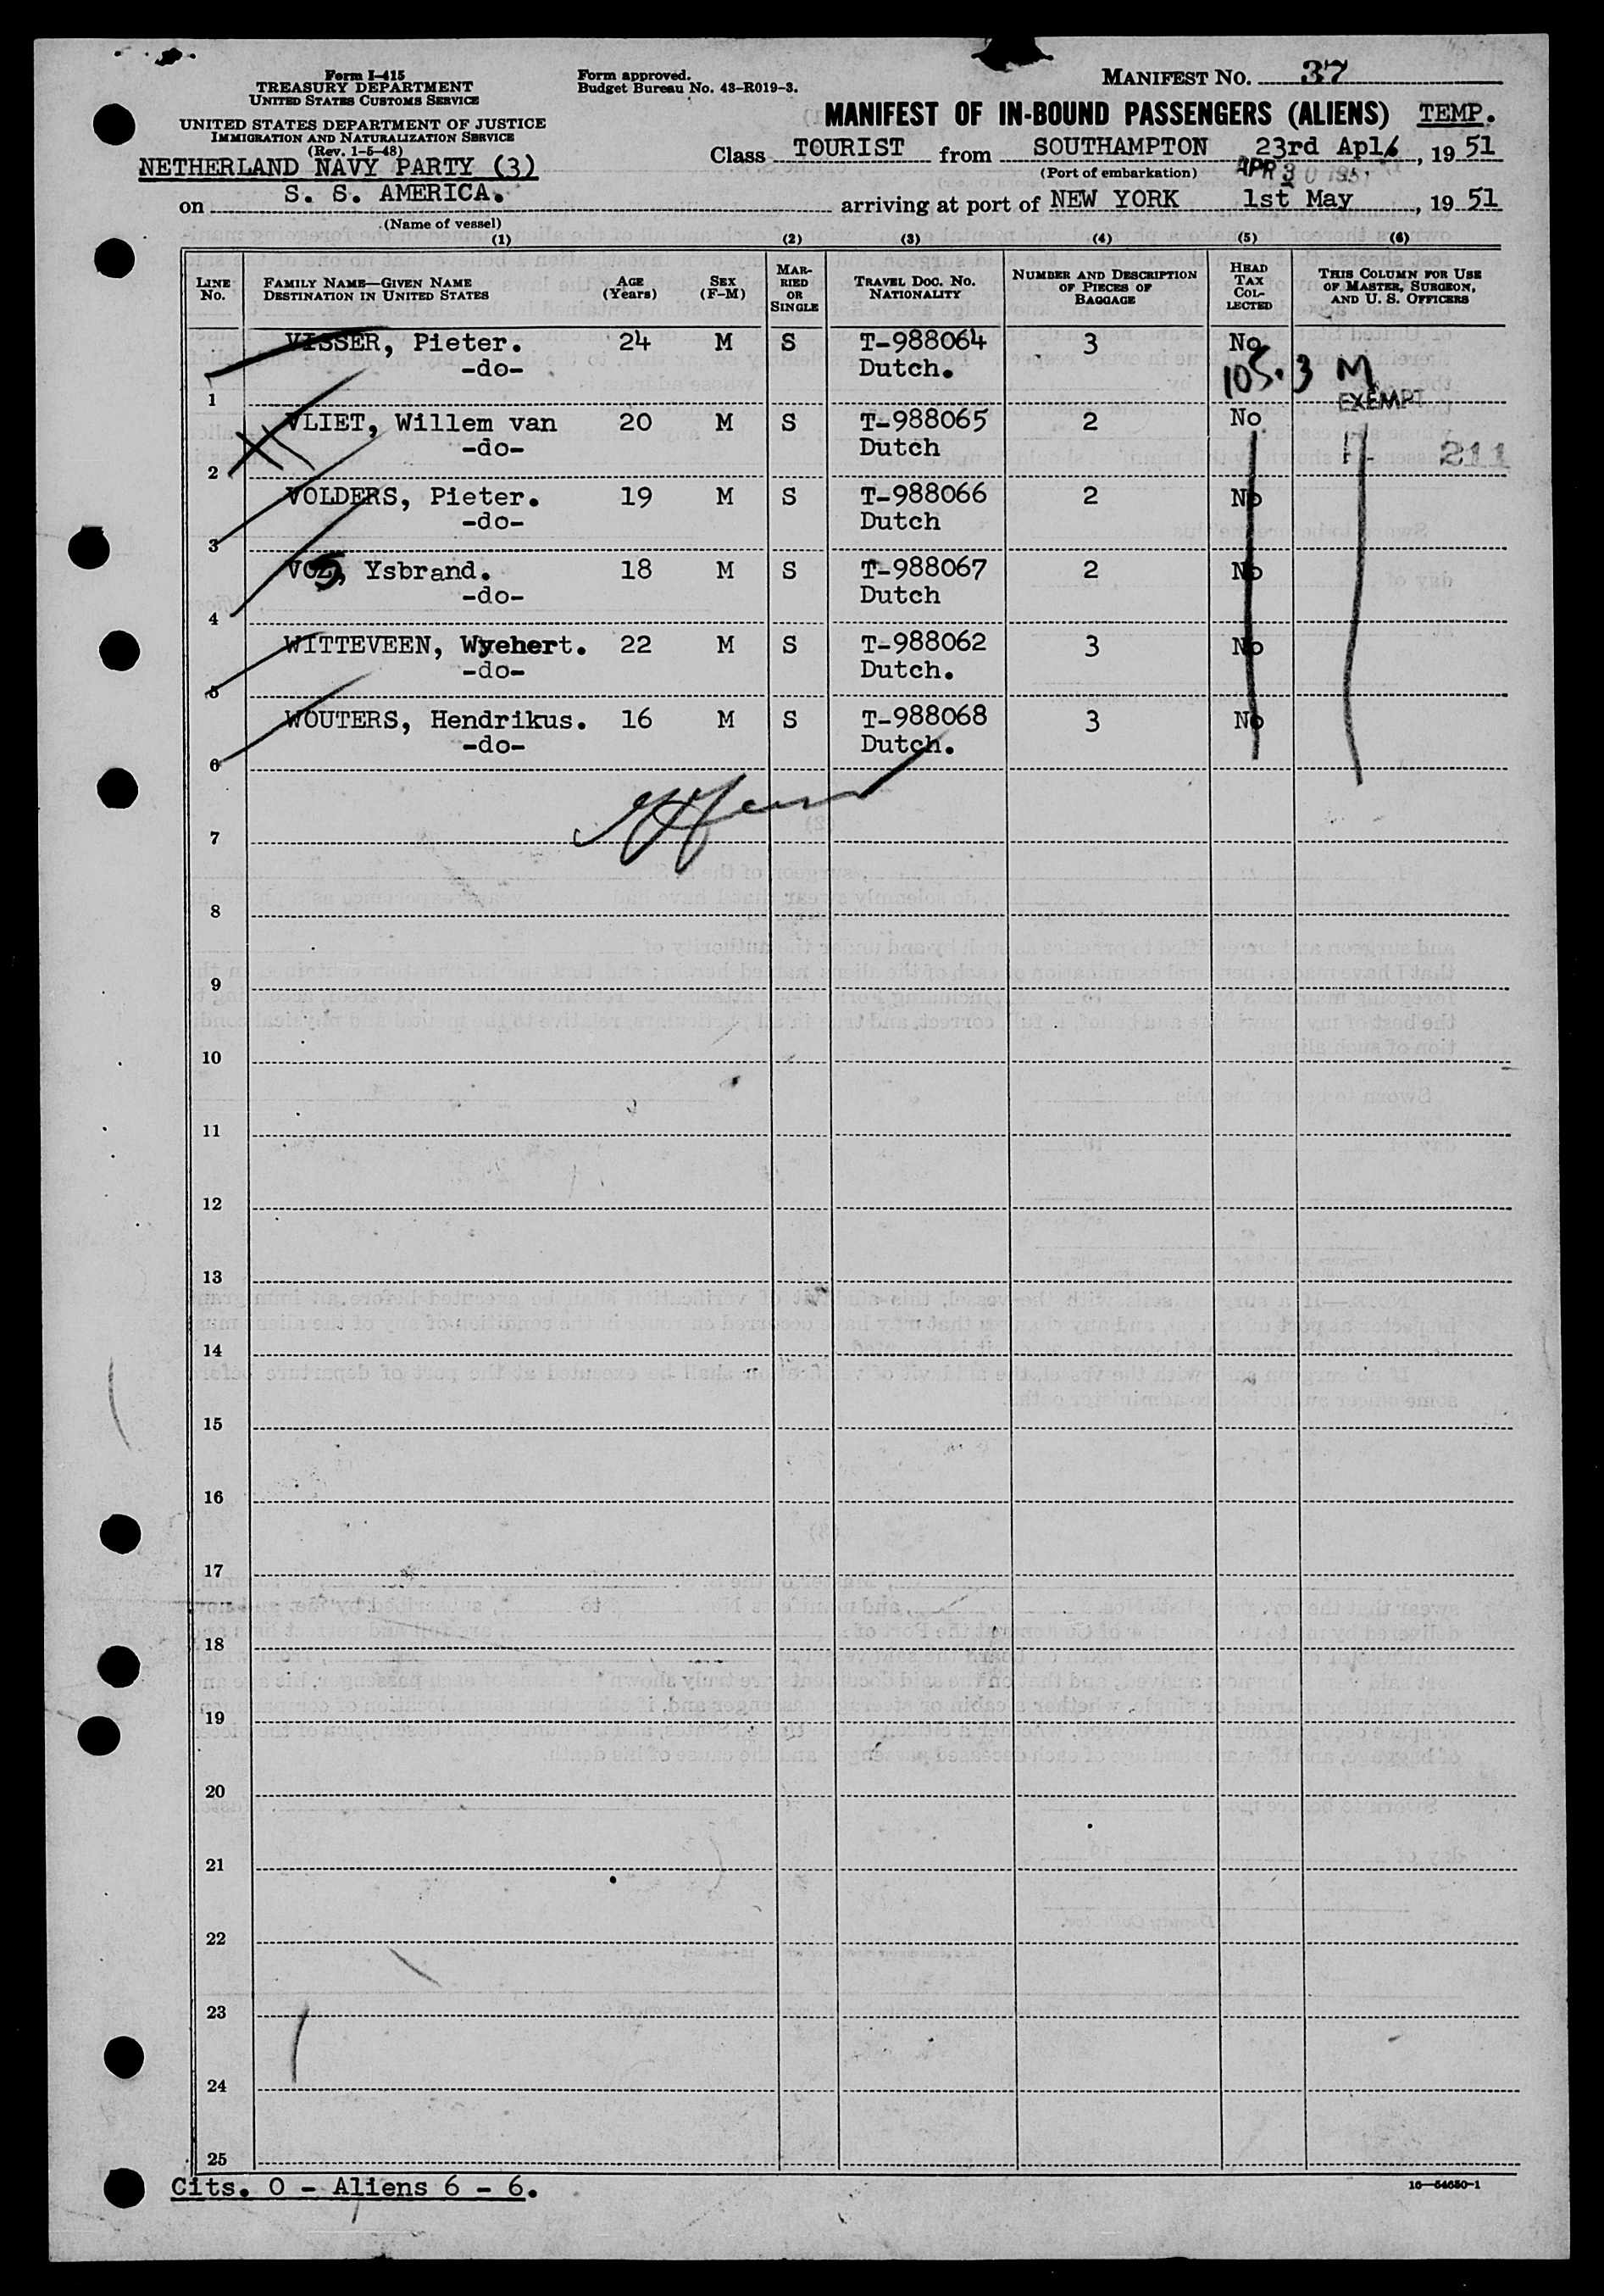 Form I-415
TREASURY DEPARTMENT
UNITED STATES CUSTOMS SERVICE
UNITED STATES DEPARTMENT OF JUSTICE
IMMIGRATION AND NATURALIZATION SERVICE
(Rev. 1-5-48)
Form approved.
Budget Bureau No. 43-R019-3.
MANIFEST NO. 37
MANIFEST OF IN-BOUND PASSENGERS (ALIENS) TEMP.
NETHERLAND NAVY PARTY (3)
Class TOURIST from SOUTHAMPTON 23rd Apl, 1951
(Port of embarkation) APR 30 1951
on S. S. AMERICA. arriving at port of NEW YORK 1st May, 1951
(Name of vessel)
(1) (2) (3) (4) (5) (6)
LINE NO. FAMILY NAME—GIVEN NAME DESTINATION IN UNITED STATES AGE (Years) SEX (F-M) MARRIED OR SINGLE TRAVEL DOC. NO. NATIONALITY NUMBER AND DESCRIPTION OF PIECES OF BAGGAGE HEAD TAX COLLECTED THIS COLUMN FOR USE OF MASTER, SURGEON, AND U. S. OFFICERS
VISSER, Pieter. 24 M S T-988064 3 No
-do- Dutch. 105.3 M
1 EXEMPT
VLIET, Willem van 20 M S T-988065 2 No
-do- Dutch 211
2
VOLDERS, Pieter. 19 M S T-988066 2 No
-do- Dutch
3
VOS, Ysbrand. 18 M S T-988067 2 No
-do- Dutch
4
WITTEVEEN, Wyehert. 22 M S T-988062 3 No
-do- Dutch.
5
WOUTERS, Hendrikus. 16 M S T-988068 3 No
-do- Dutch.
6
7
8
9
10
11
12
13
14
15
16
17
18
19
20
21
22
23
24
25
Cits. 0 - Aliens 6 - 6.
16—54650-1